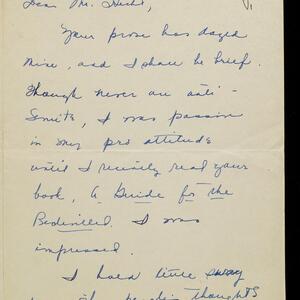 Dear Mr. Hecht,
Your prose has dazed
mine, and I shall be brief.
Though never an anti-
Semite, I was passive
in my pro attitude
until I recently read your
book, A Guide for the
Bedevilled. I was
impressed.
I hold little sway
thoughts